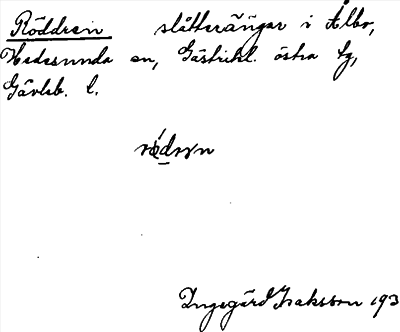 Röddrein slåtterängar i Ålbo,
Hedesunda sn, Gästrikl. östra tg,
Gävleb. l.
Ingegärd Isaksson 193